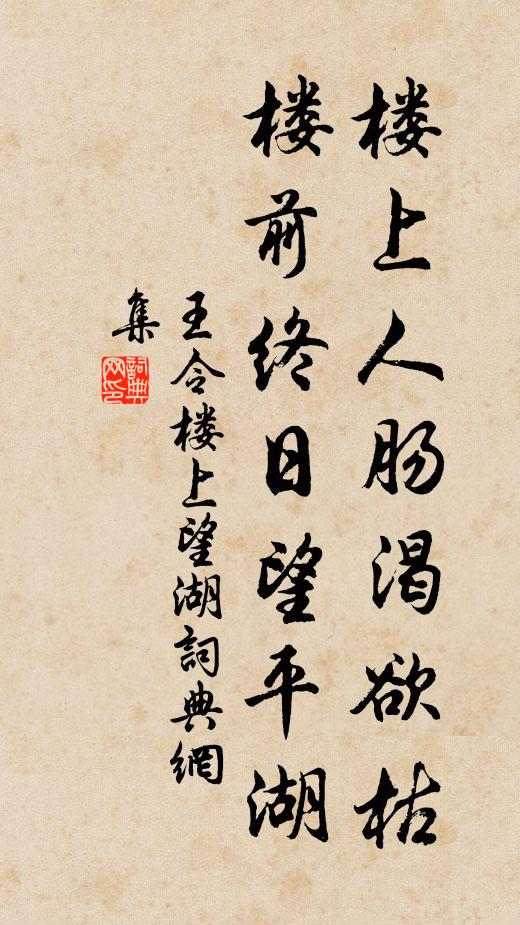 楼上人肠渴欲枯
楼前终日望平湖
王令楼上望湖詞典網
集
詞典網印